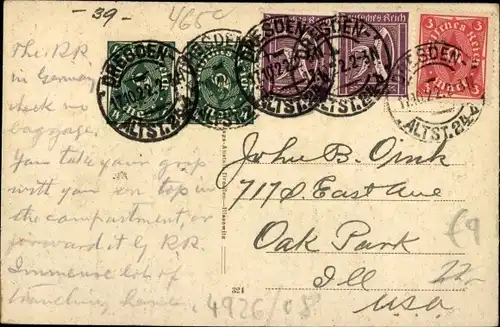 -39-
465c
DRESDEN
ALTST. 24
DRESDEN
ALTST. 24
DRESDEN
ALTST. 24
DRESDEN
ALTST. 24
Deutsches Reich
3
The RR
in Germany
check no
baggage.
You take your grip
with you on top in
the compartment or
forward it by RR.
Immense lot of
traveling
John B. Oink
717 S. East Ave
Oak Park
Ill
U.S.A.
£9
22-
321
4926/08